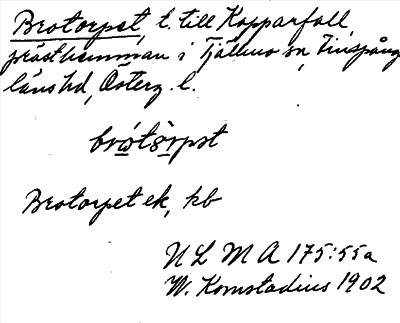 Brotorpet, t. till Kopparfall,
prästhemman i Tjällmo sn, Finspånga
länshd, Österg. l.
brótòrpət
Brotorpet ek, kb
N L M A 175:55a
W. Komstadius 1902